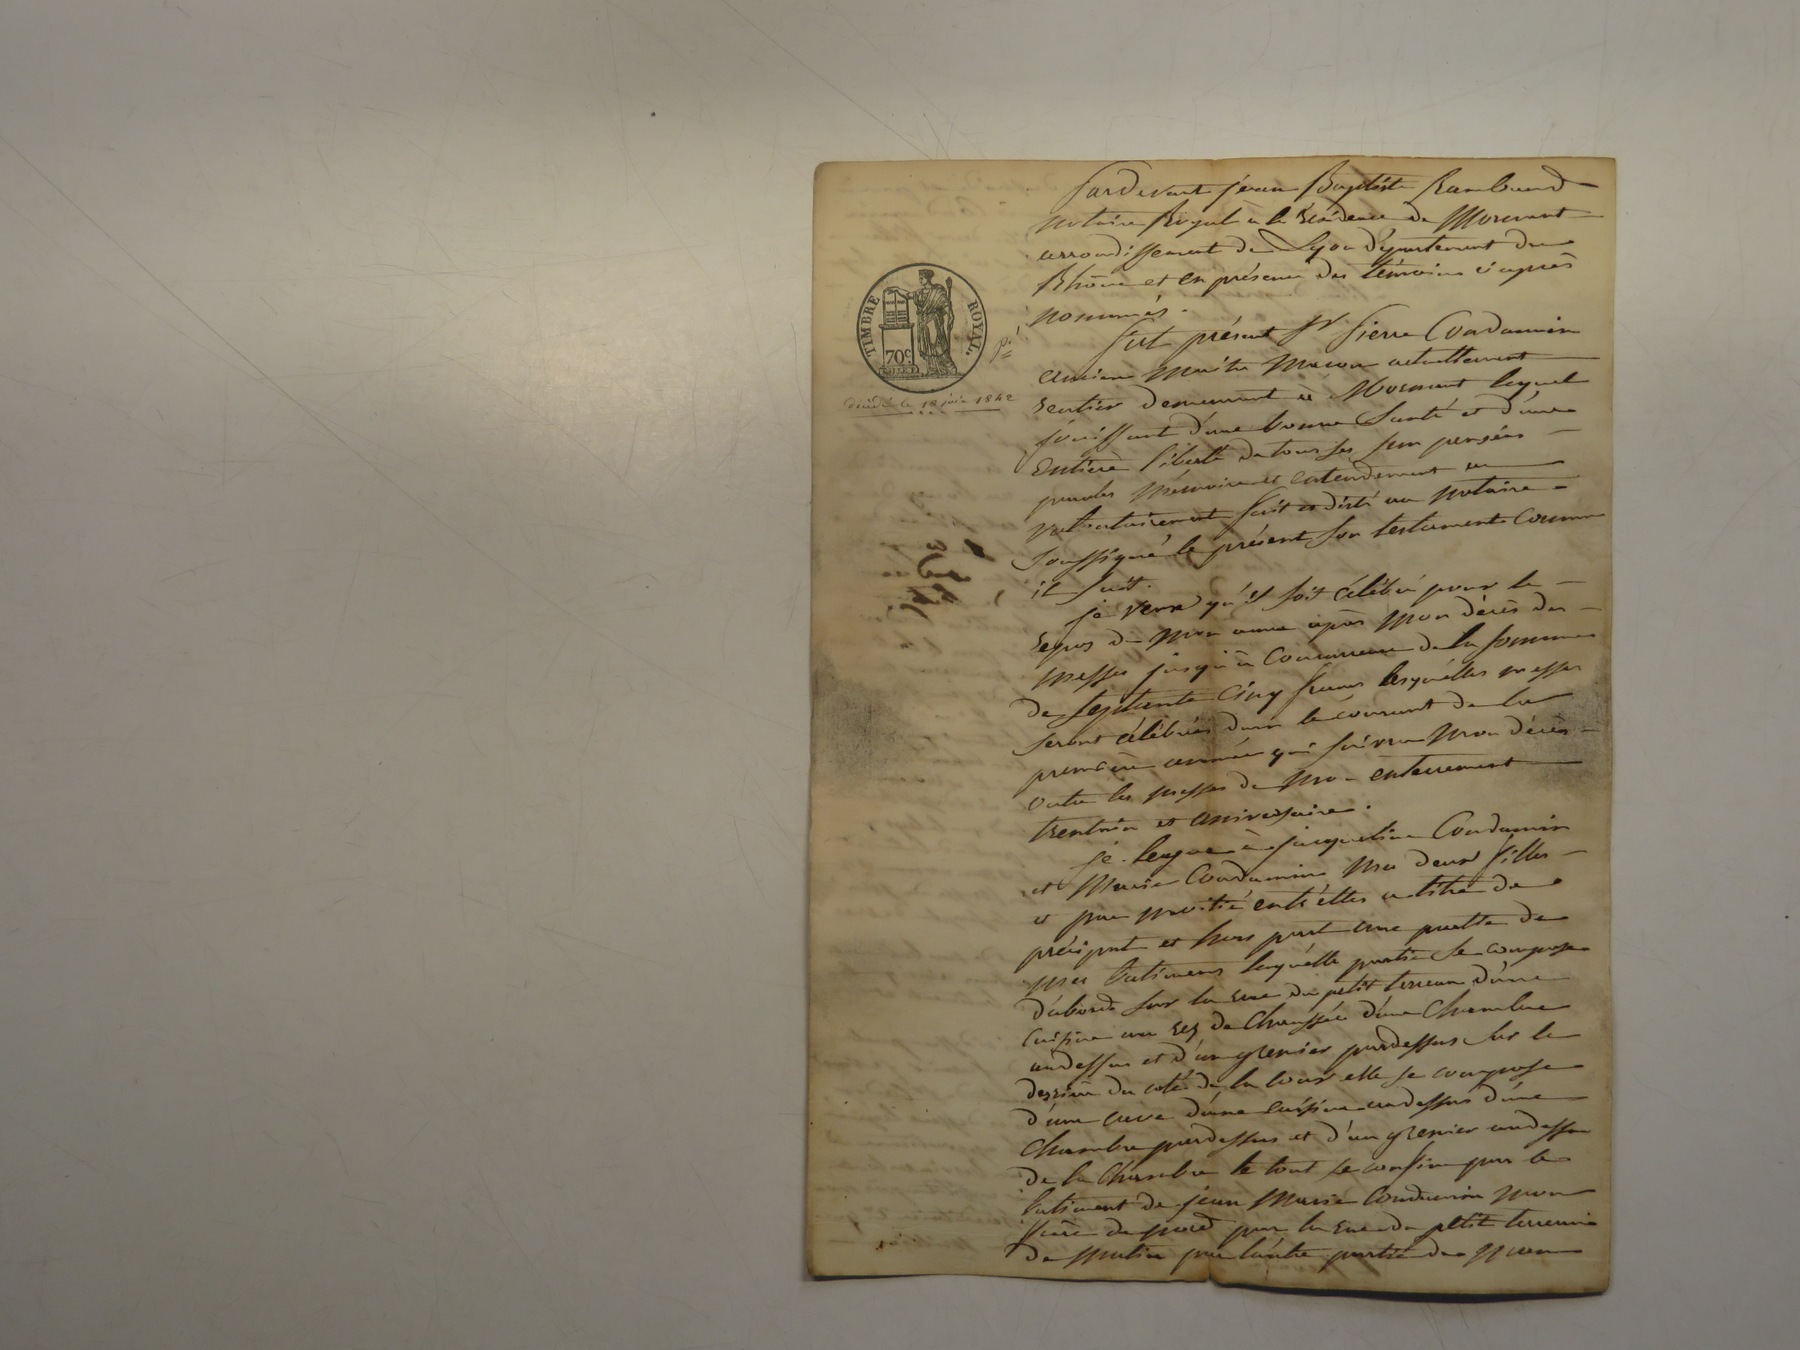 Pardevant jean Baptiste Rambaud
notaire Royal à la Résidence de Mornant
arrondissement de Lyon département du
Rhône et en présence des témoins ci après
nommés.
fut présent Sr pierre Condamin
ancien Maitre Macon actuellement
rentier demeurant à Mornant lequel
jouissant d'une bonne Santé et d'une
entière liberté de tous ses sens pensées
paroles Mémoire et entendement a
volontairement fait et dicté au notaire
soussigné le présent son testament comme
il suit.
je veux qu'il soit célébré pour le
repos de mon ame après Mon décès des
messes jusqu'à Concurrence de la somme
de septante cinq francs lesquelles messes
seront célébrées dans le courant de la
première année qui suivra Mon décès
outre les messes de Mon enterrement
trentain et aniversaire.
je legue à jacqueline Condamin
et Marie Condamin Mes deux filles
et par moitié entr'elles a titre de
préciput et hors part une partie de
mes batimens laquelle partie se compose
d'abord sur la rue du petit terreau d'une
cuisine au rez de Chaussée d'une Chambre
audessus et d'un grenier pardessus sur le
derrière du coté de la cour elle se compose
d'une cave d'une cuisine audessus d'une
Chambre pardessus et d'un grenier audessus
de la Chambre le tout se confine par le
batiment de jean Marie Condamin Mon
frère de nord par la rue du petit terreau
de matin par l'autre partie de Mon
TIMBRE ROYAL.
70c
décédé le 18 juin 1842